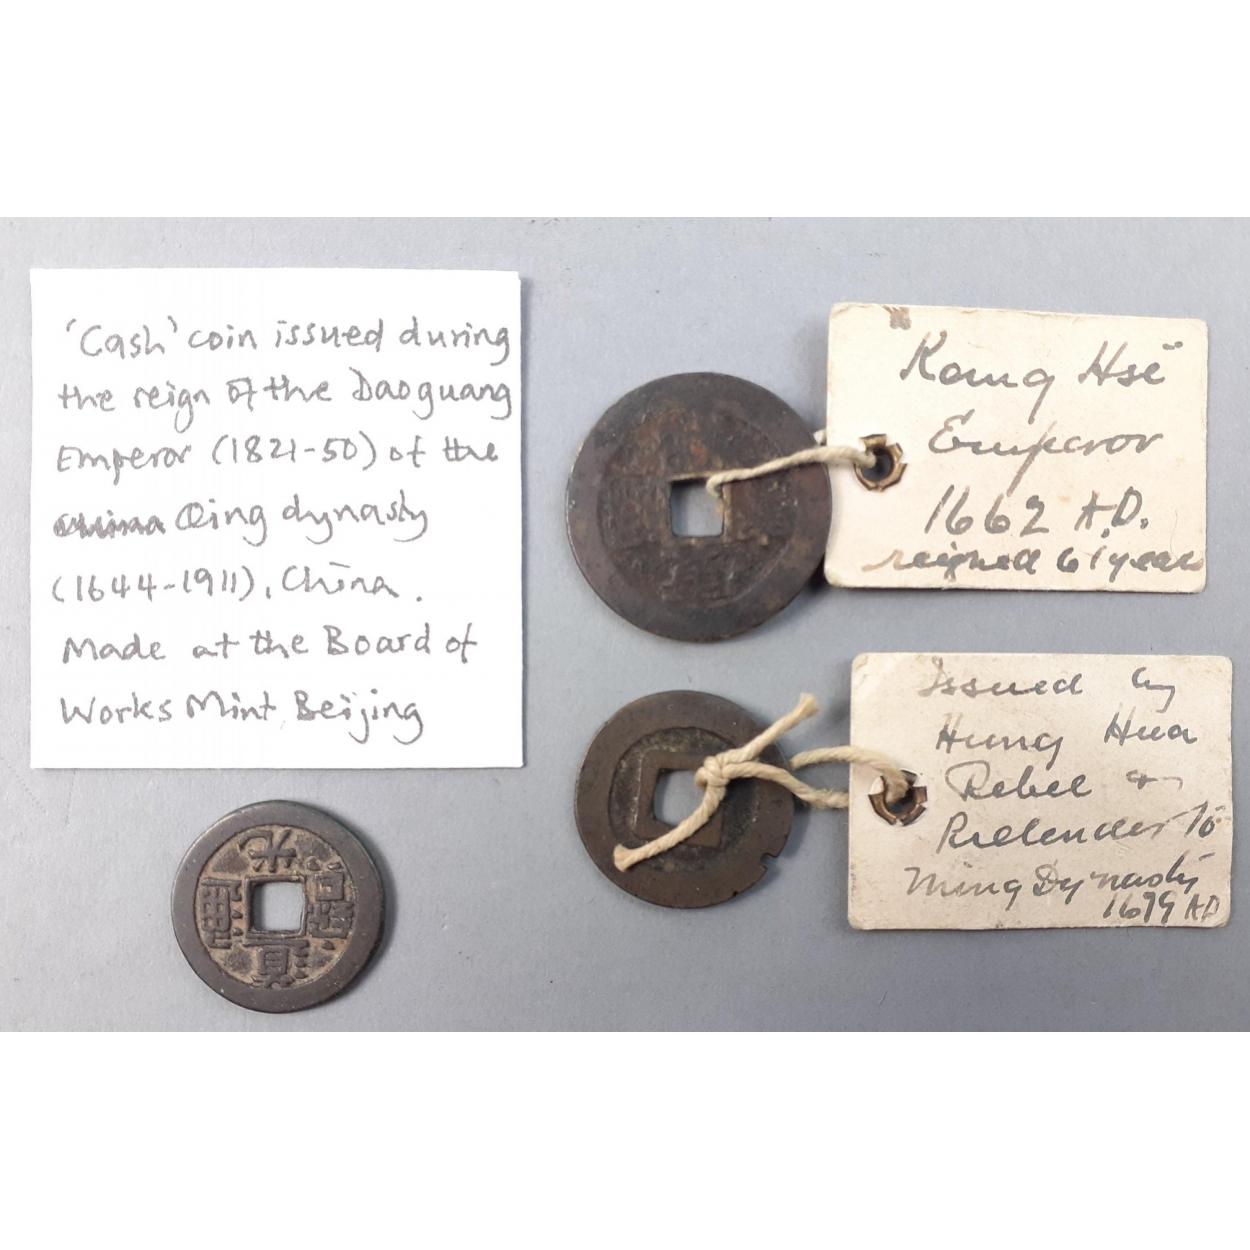 'Cash' coin issued during
the reign of the Daoguang
Emperor (1821-50) of the
China Qing dynasty
(1644-1911), China.
Made at the Board of
Works Mint, Beijing
Kang Hsi
Emperor
1662 A.D.
reigned 61 years
Issued by
Hung Hua
Rebel &
Pretender to
Ming Dynasty
1679 AD
道光通寶